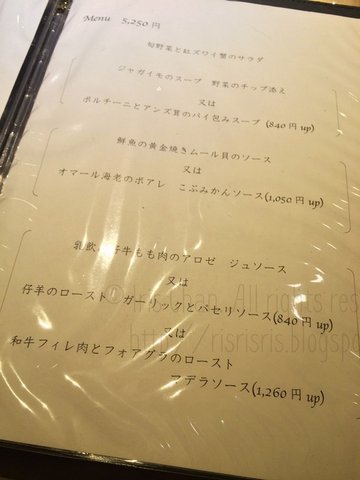 Menu 5,250 円
旬野菜と紅ズワイ蟹のサラダ
ジャガイモのスープ 野菜のチップ添え
又は
ポルチーニとアンズ茸のパイ包みスープ (840 円 up)
鮮魚の黄金焼きムール貝のソース
又は
オマール海老のポアレ こぶみかんソース(1,050 円 up)
乳飲み仔牛もも肉のアロゼ ジュソース
又は
仔羊のロースト ガーリックとパセリソース(840 円 up)
又は
和牛フィレ肉とフォアグラのロースト
マデラソース(1,260 円 up)
All rights res
http://risrisris.blogspo